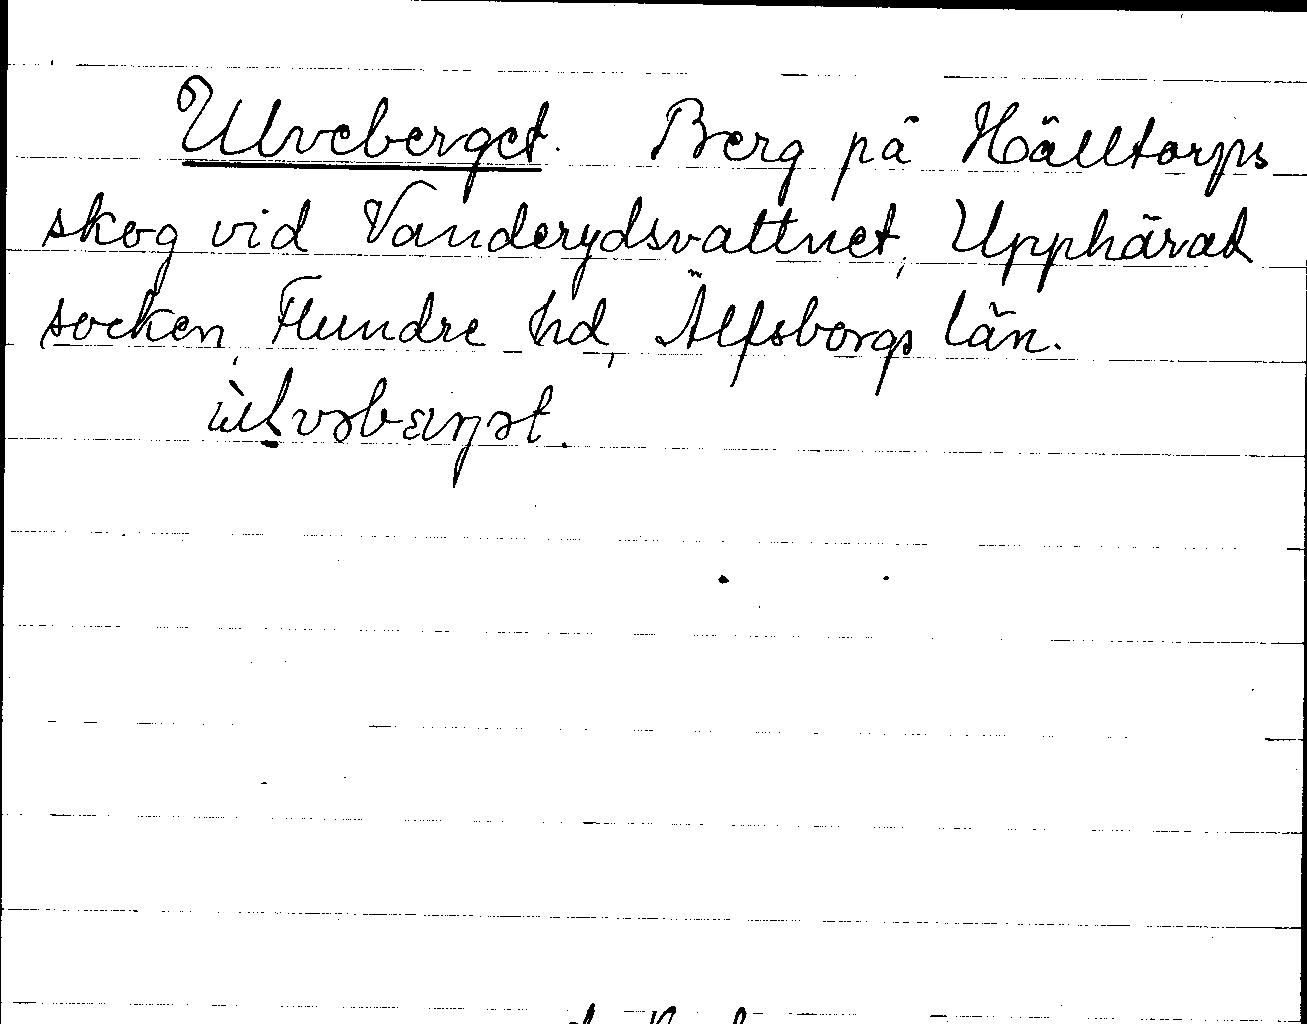 Ulveberget. Berg på Hälltorps
skog vid Vanderydsvattnet, Upphärad
socken, Flundre hd, Älfsborgs län.